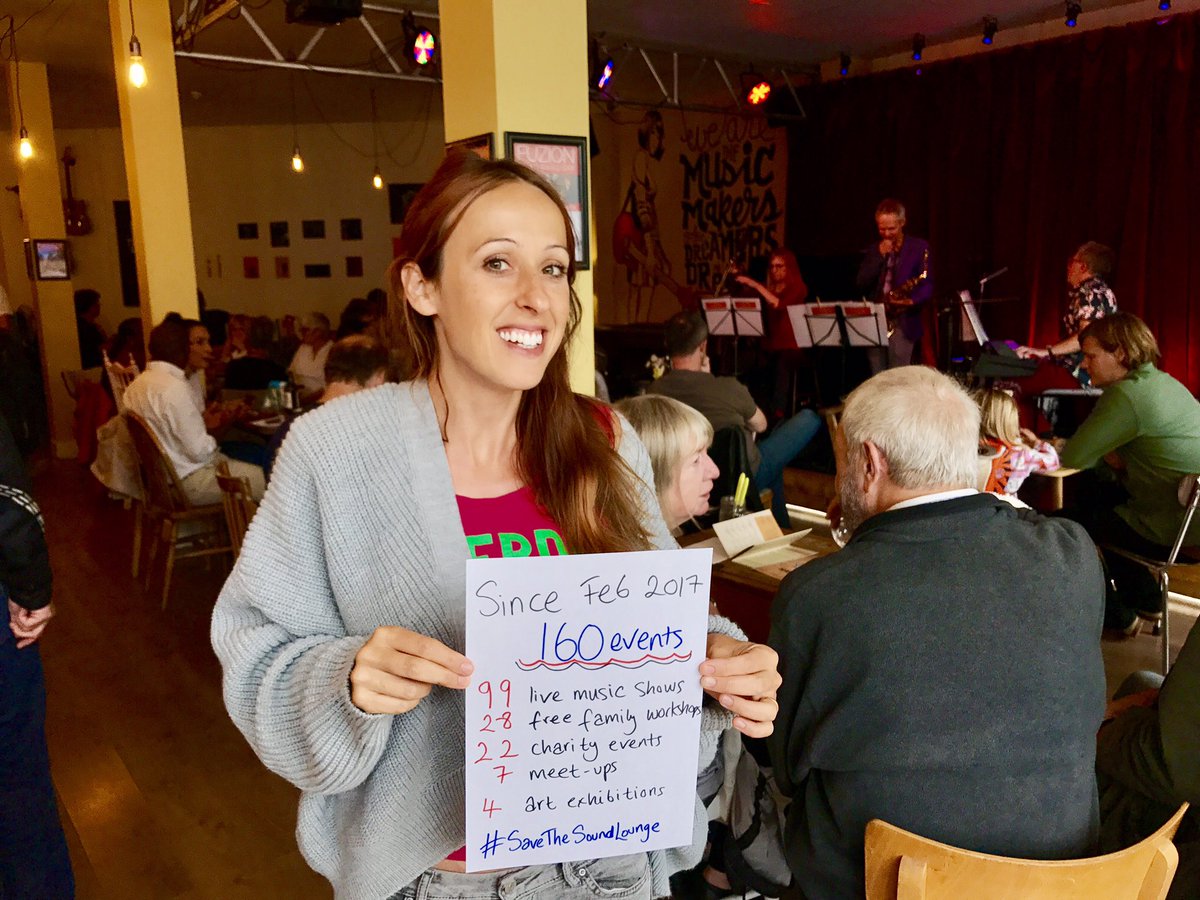 FUZION
we are
MUSIC
MAKERS
DREAMERS
Since Feb 2017
160 events
99 live music shows
28 free family workshops
22 charity events
7 meet-ups
4 art exhibitions
#SaveTheSoundLounge